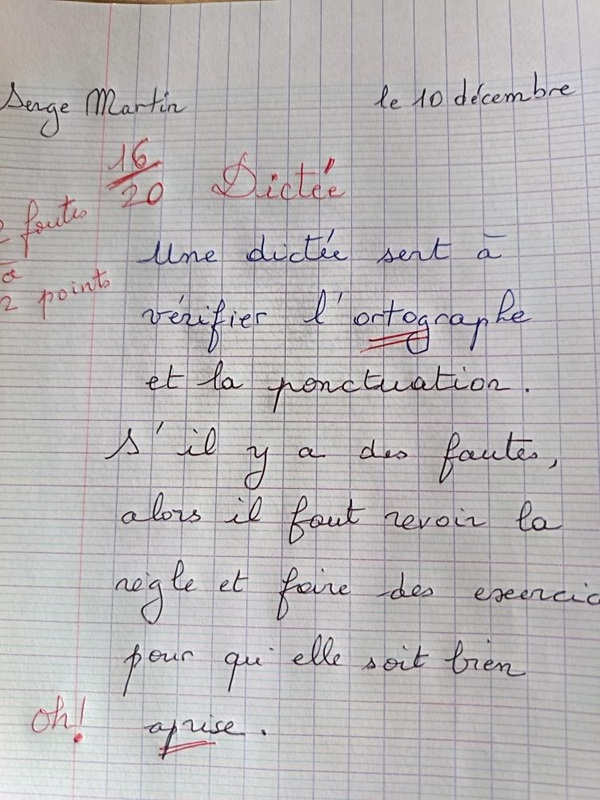 Serge Martin le 10 décembre
16/20 Dictée
2 fautes
à
2 points
Une dictée sert à
vérifier l'ortographe
et la ponctuation.
S'il y a des fautes,
alors il faut revoir la
règle et faire des exercic
pour qu'elle soit bien
Oh! aprise.